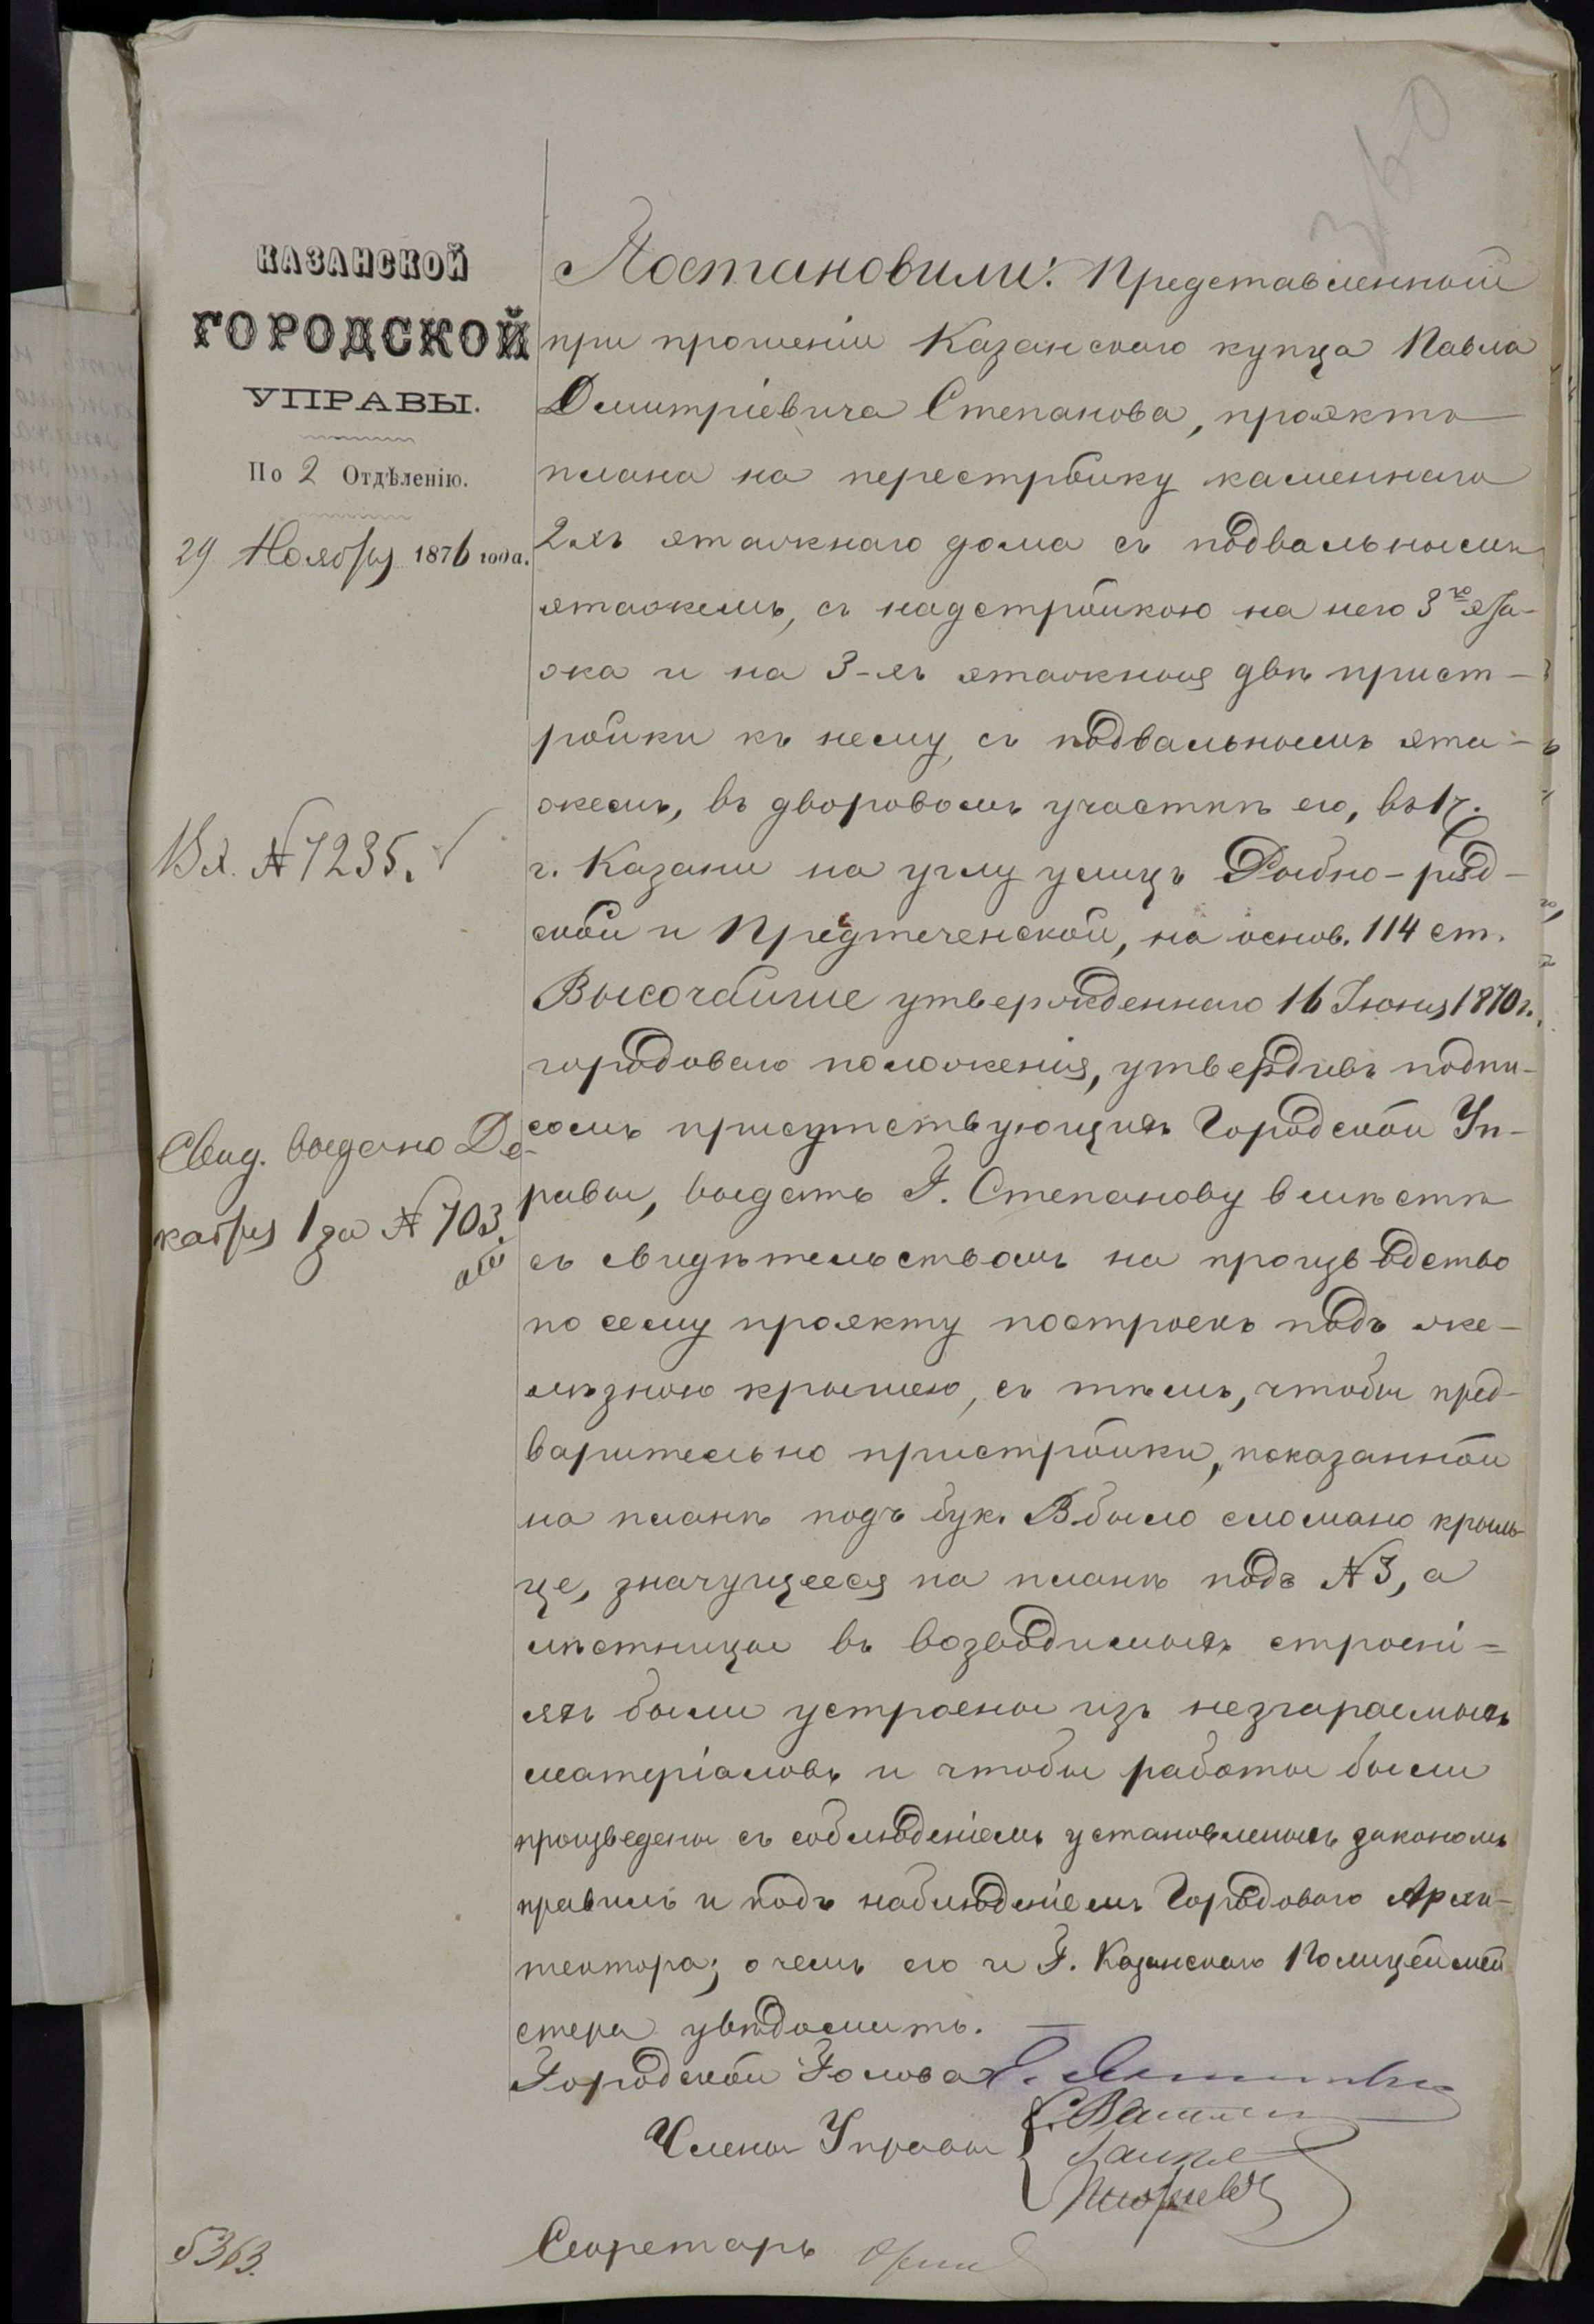 360
КАЗАНСКОЙ
ГОРОДСКОЙ
УПРАВЫ.
По 2 Отдѣленію.
29 Ноября 1876 года.
Вх. № 7235.
Свид. выдано Де-
кабря 1 за № 703.
5363.
Постановили: Представленный
при прошеніи Казанскаго купца Павла
Дмитріевича Степанова, проэктъ
плана на перестройку каменнаго
2-хъ этажнаго дома съ подвальнымъ
этажемъ, съ надстройкою на него 3го эта-
жа и на 3-хъ этажныя двѣ прист-
ройки къ нему, съ подвальнымъ эта-
жемъ, въ дворовомъ участкѣ его, въ 1 ч.
г. Казани на углу улицъ Рыбно-ряд-
ской и Предтеченской, на основ. 114 ст.
Высочайше утвержденнаго 16 Іюня 1870 г.
городоваго положенія, утвердивъ подпи-
сомъ присутствующихъ Городской Уп-
равы, выдать Г. Степанову вмѣстѣ
съ свидѣтельствомъ на производство
по сему проэкту построекъ подъ же-
лѣзною крышею, съ тѣмъ, чтобы пред-
варительно пристройки, показанной
на планѣ подъ бук. В было сломано крыль-
це, значущееся на планѣ подъ № 3, а
лѣстницы въ возводимыхъ строені-
яхъ были устроены изъ незгараемыхъ
матеріаловъ и чтобы работы были
произведены съ соблюденіемъ установленыхъ закономъ
правилъ и подъ наблюденіемъ Городоваго Архи-
тектора; о чемъ его и Г. Казанскаго Полицеймей
стера увѣдомить.
Городской Голова
Члены Управы
Секретарь